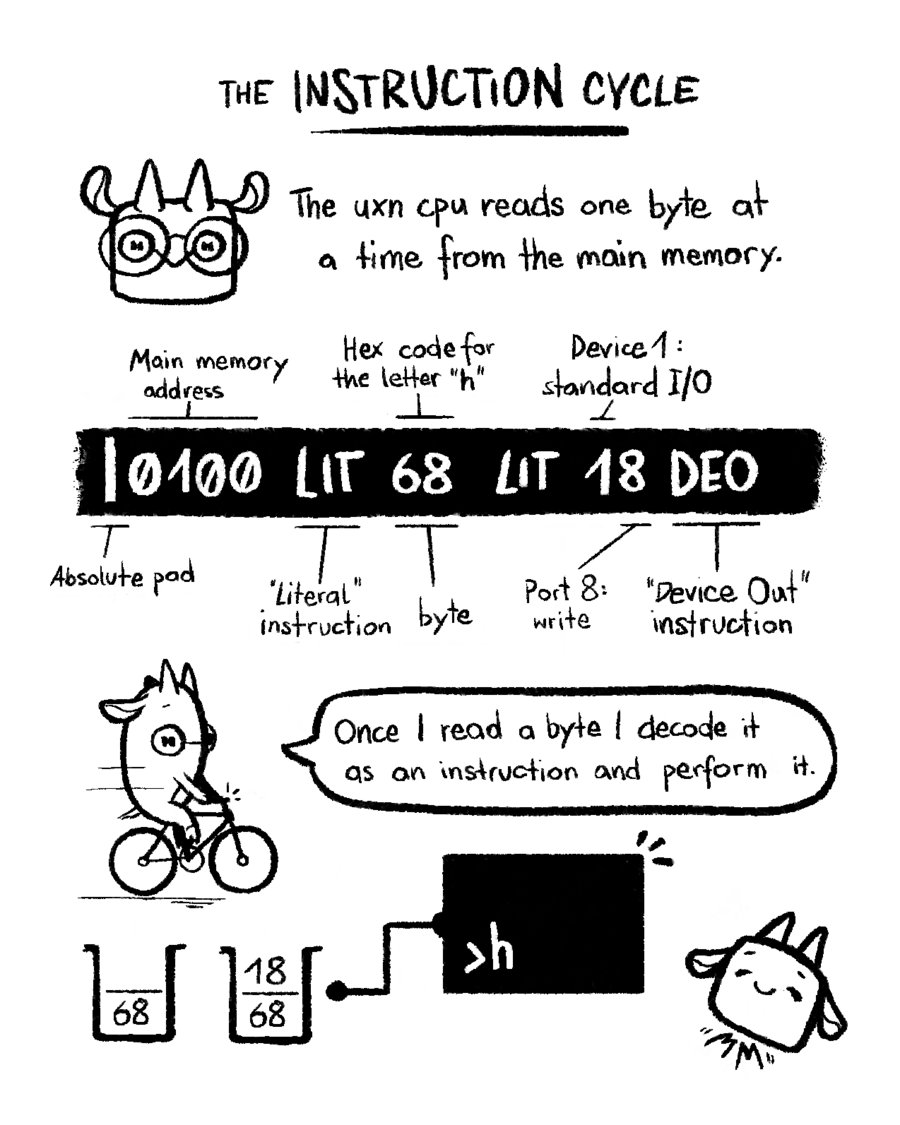 THE INSTRUCTION CYCLE
The uxn cpu reads one byte at
a time from the main memory.
Main memory
address
Hex code for
the letter "h"
Device 1:
standard I/O
|0100 LIT 68 LIT 18 DEO
Absolute pad
"Literal"
instruction
byte
Port 8:
write
"Device Out"
instruction
Once I read a byte I decode it
as an instruction and perform it.
68
18
68
>h